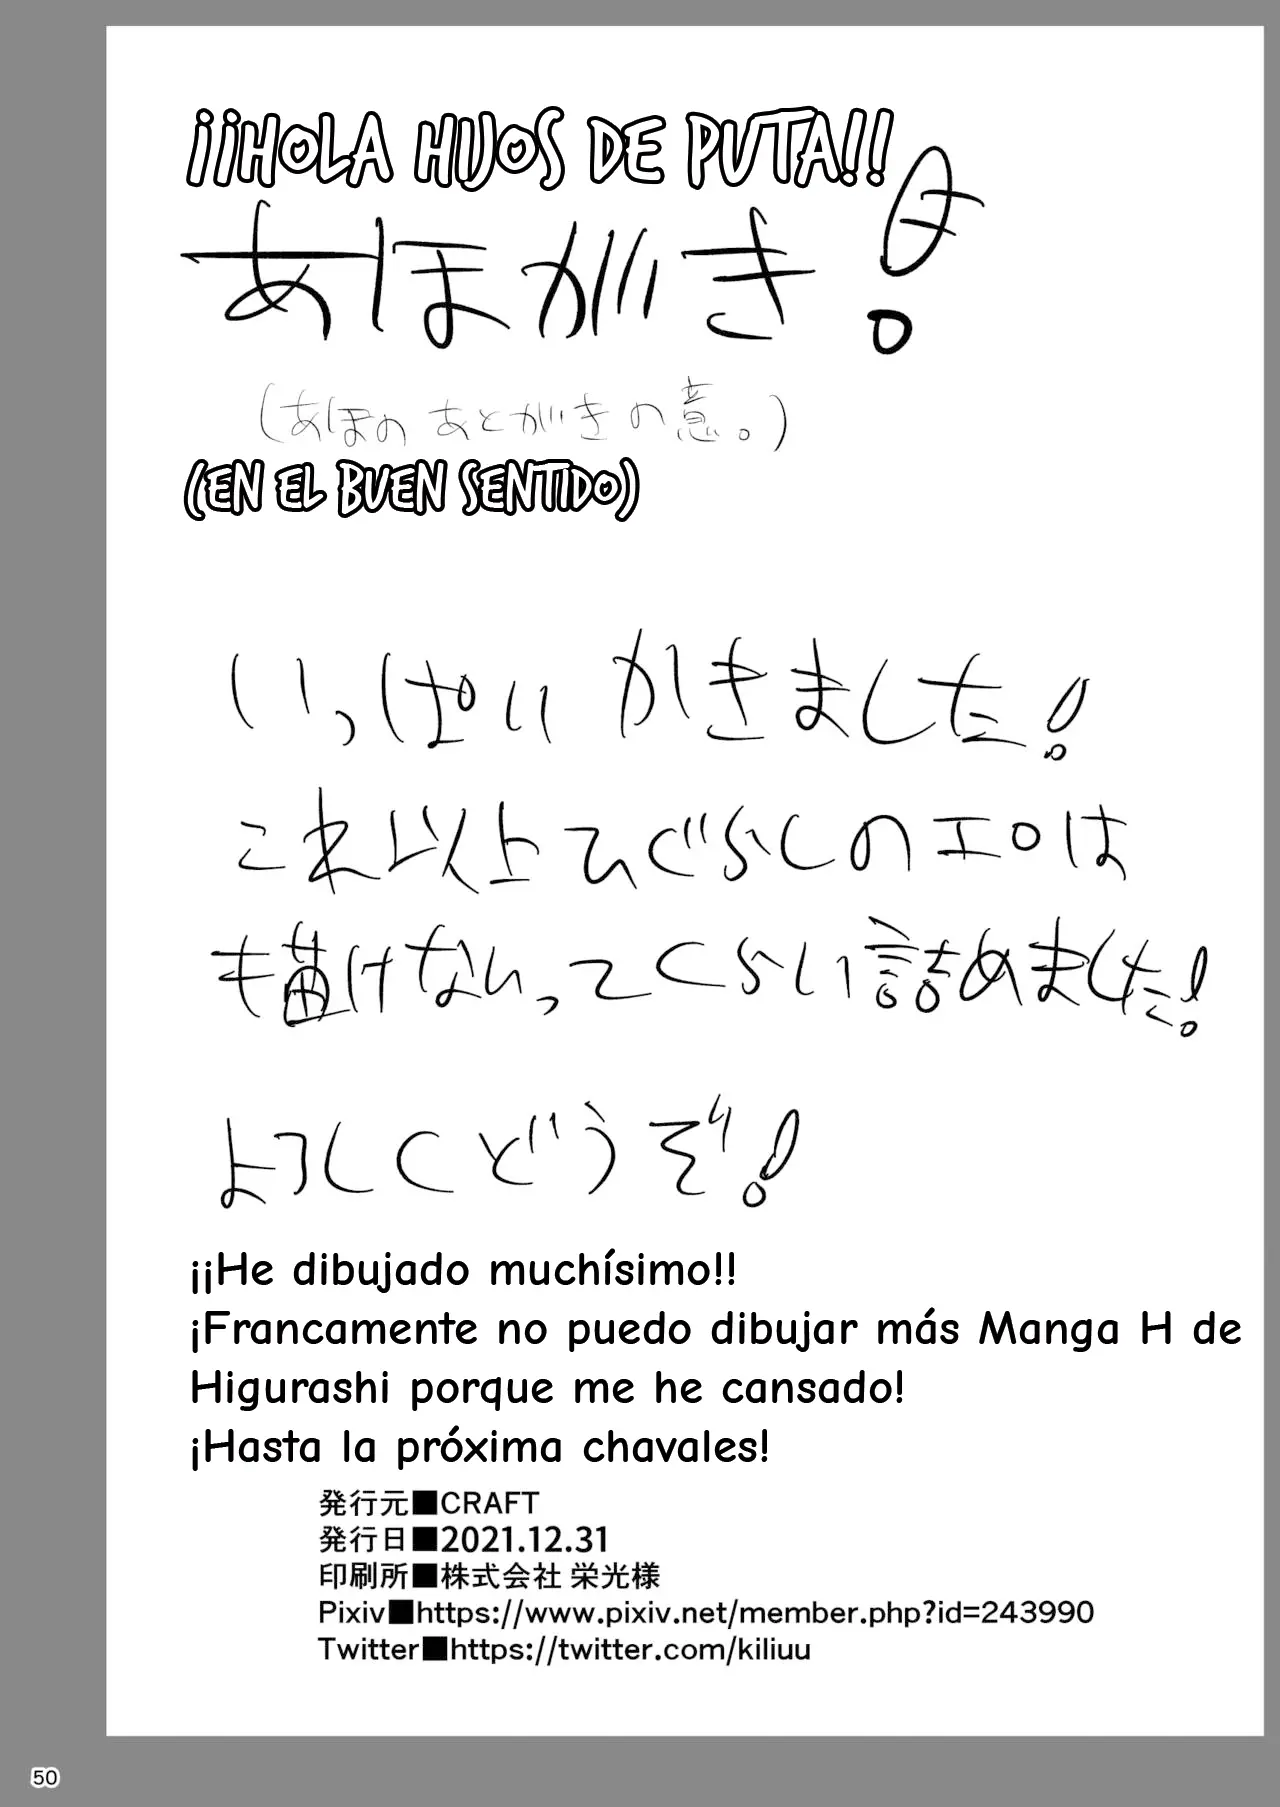 ¡¡HOLA HIJOS DE PUTA!!
あほがき!
(あほのあとがきの意。)
(EN EL BUEN SENTIDO)
いっぱいかきました!
これ以上ひぐらしのエロは
も描けないってくらい詰めました!
よろしくどうぞ!
¡¡He dibujado muchísimo!!
¡Francamente no puedo dibujar más Manga H de
Higurashi porque me he cansado!
¡Hasta la próxima chavales!
発行元■CRAFT
発行日■2021.12.31
印刷所■株式会社 栄光様
Pixiv■https://www.pixiv.net/member.php?id=243990
Twitter■https://twitter.com/kiliuu
50